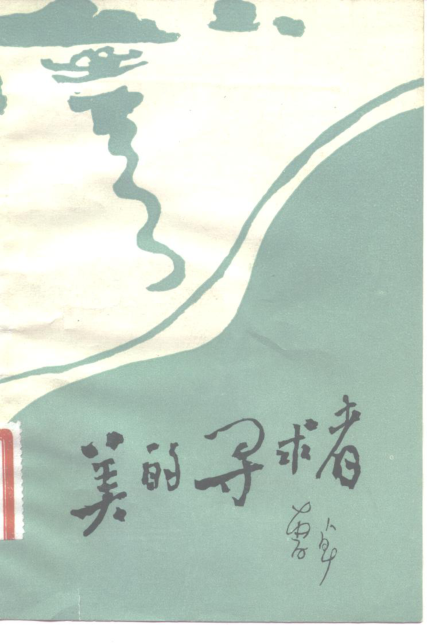 美的寻求者